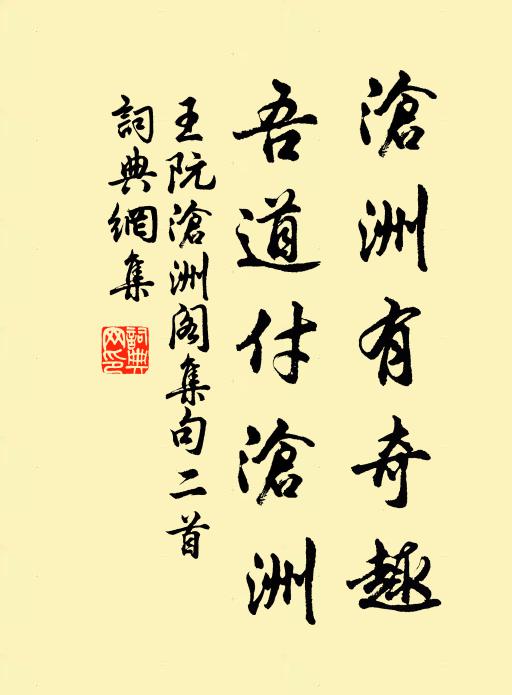 滄洲有奇趣
吾道付滄洲
王阮滄洲阁集句二首
詞典網集
詞典網印